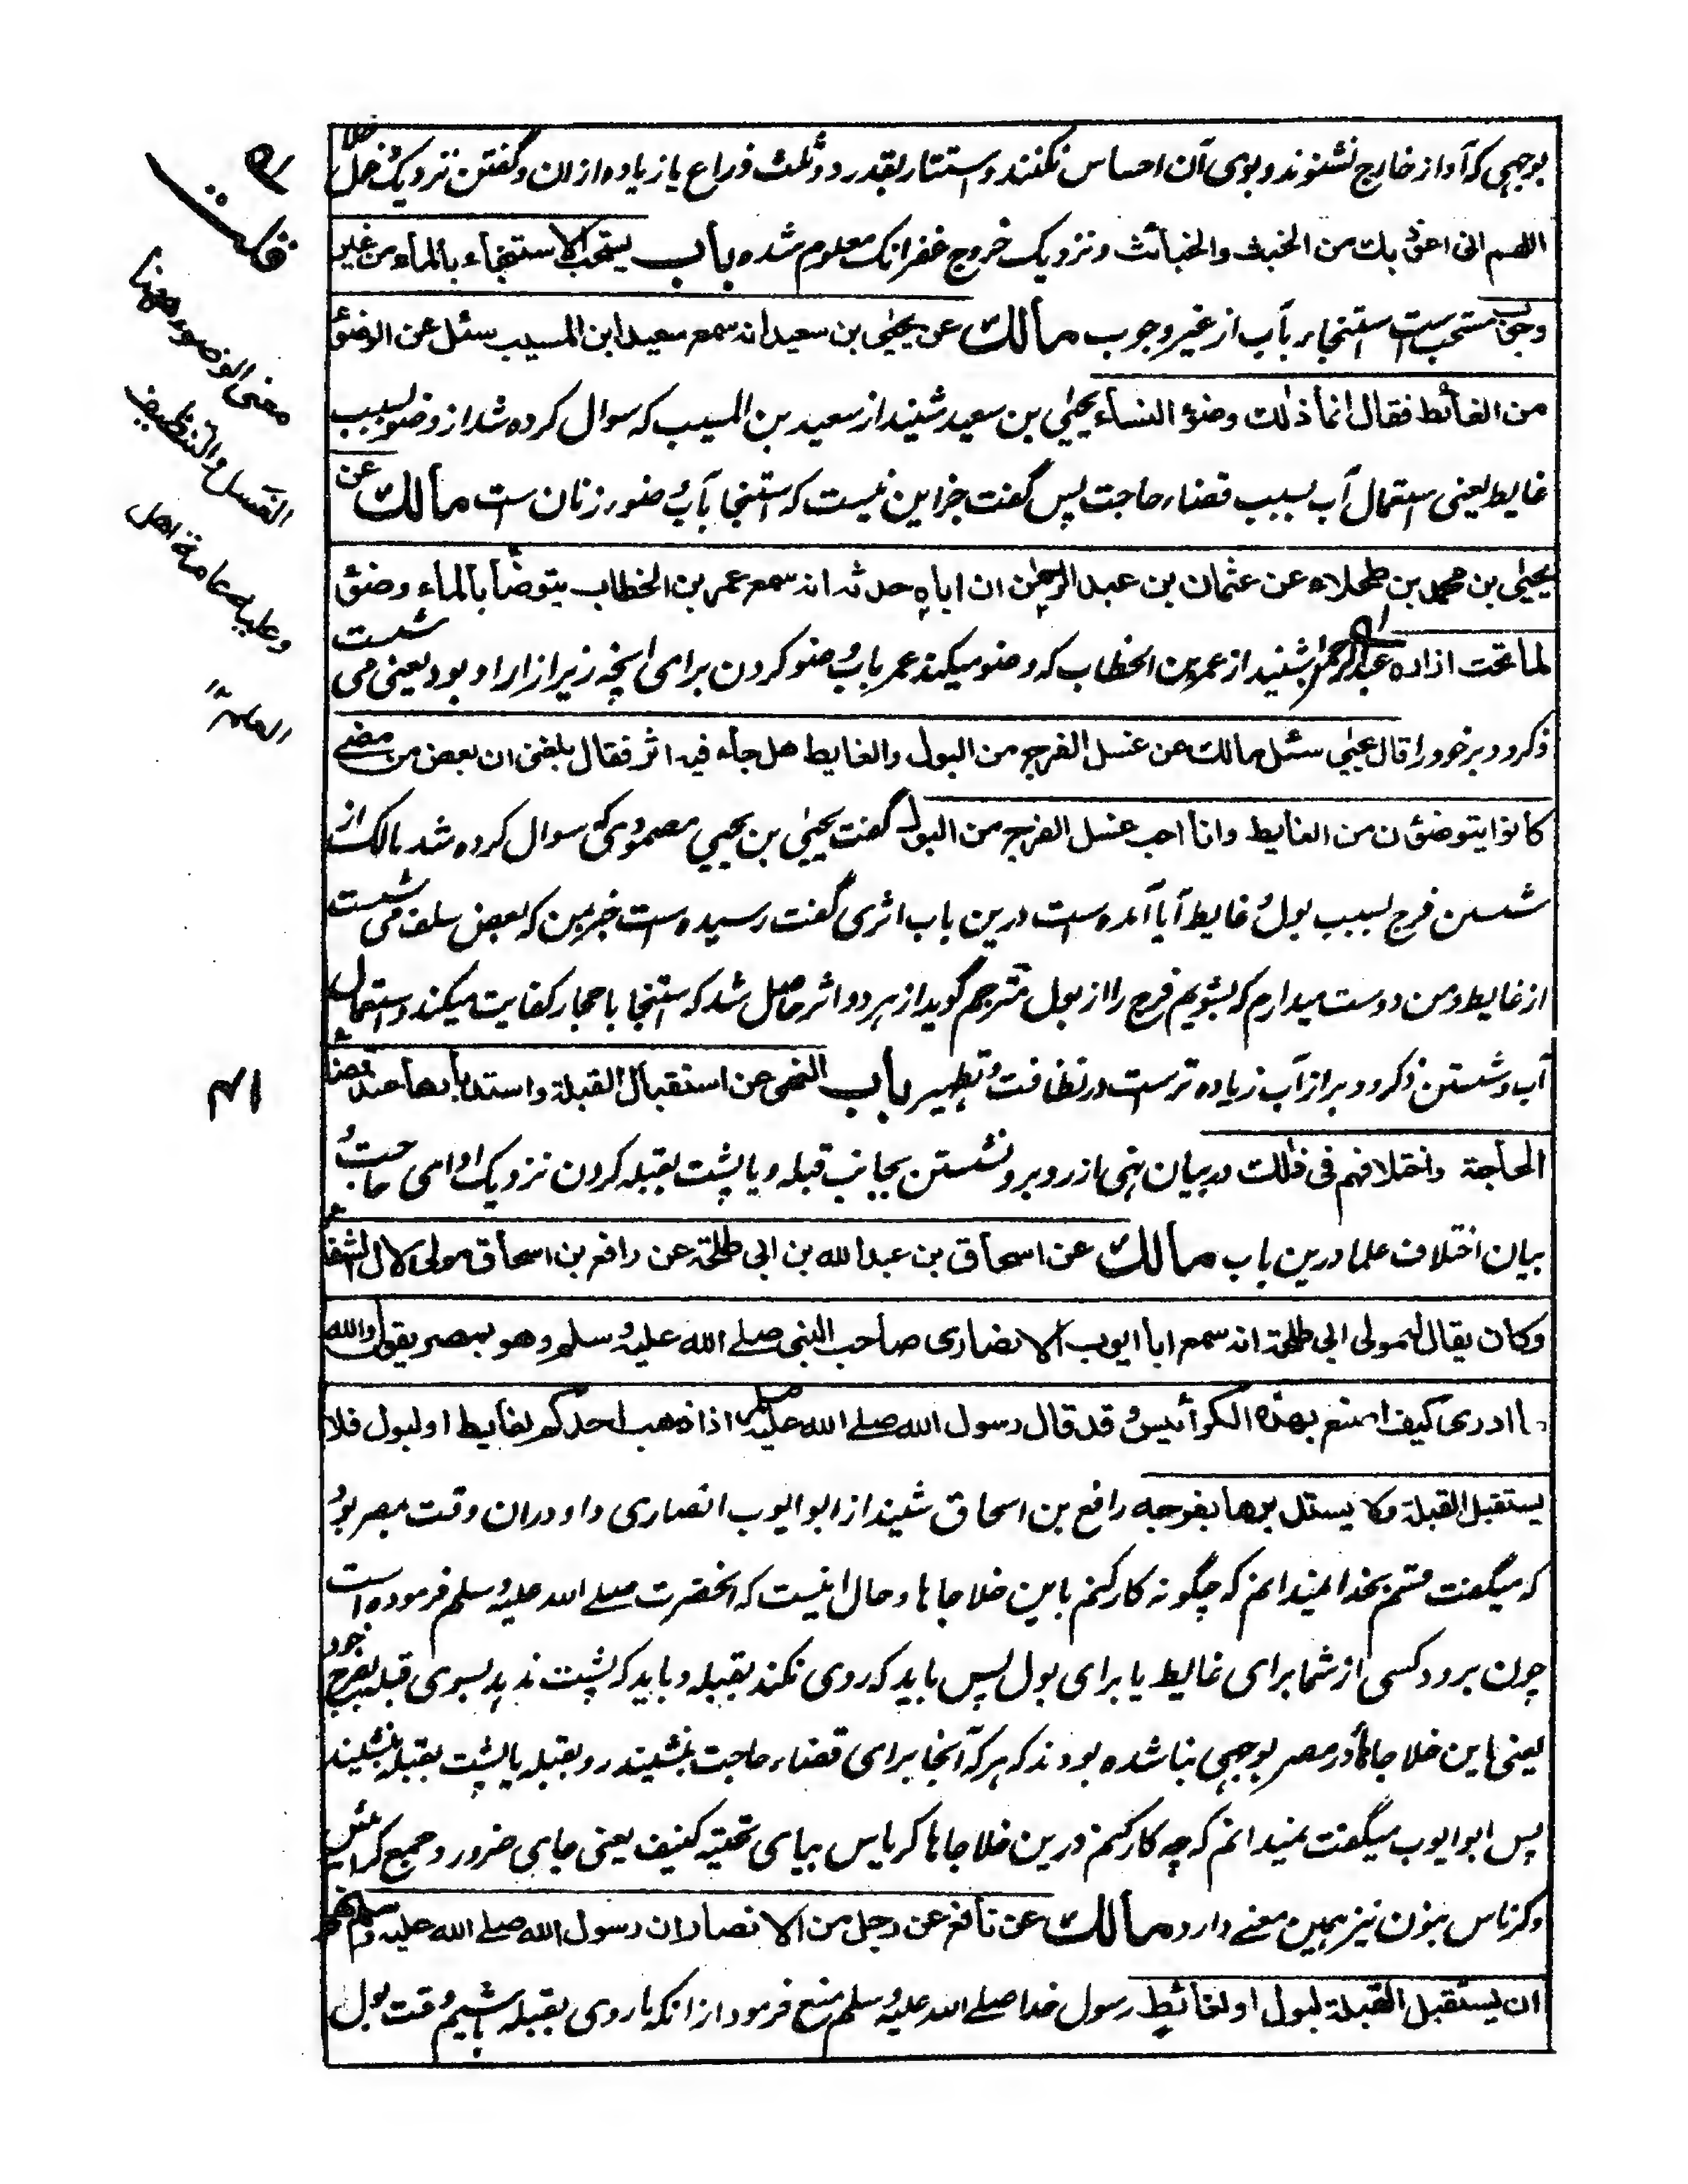 بوجهی که آواز خارج نشنوند و بوی آن احساس نکنند و استتار بقدر دو ثلث ذراع یا زیاده ازان و گفتن نزدیک دخول خلا
اللهم انی اعوذ بك من الخبث والخبائث و نزدیک خروج غفرانک معلوم شده باب یستحب الاستنجاء بالماء من غیر
وجوب مستحب ست استنجاء بآب از غیر وجوب مالك عن یحیی بن سعید انه سمع سعید ابن المسیب سئل عن الوضوء
من الغائط فقال انما ذلك وضوء النساء یحیی بن سعید شنید از سعید بن المسیب که سوال کرده شد از وضو بسبب
غایط یعنی استعمال آب بسبب قضاء حاجت پس گفت جز این نیست که استنجا بآب وضوء زنان ست مالك عن
یحیی بن محمد بن طحلاء عن عثمان بن عبد الرحمن ان اباه حدثه انه سمع عمر بن الخطاب یتوضأ بالماء وضوء
لما تحت ازاره عبدالرحمن شنید از عمر بن الخطاب که وضو میکند عمر بآب وضو کردن برای آنچه زیر ازار او بود یعنی می شست
ذکر و دبر خود را قال یحیی سئل مالك عن غسل الفرج من البول والغایط هل جاء فیه اثر فقال بلغنی ان بعض من مضی
کانوا یتوضؤن من الغایط وانا احب غسل الفرج من البول گفت یحیی بن یحیی مصمودی که سوال کرده شد مالک از
شستن فرج بسبب بول و غایط آیا آمده است درین باب اثری گفت رسیده است خبر بمن که بعض سلف می شست
از غایط و من دوست میدارم که بشویم فرج را از بول مترجم گوید از هر دو اثر حاصل شد که استنجا باحجار کفایت میکند و استعمال
آب و شستن ذکر و دبر از آب زیاده ترست در نظافت و تطهیر باب النهی عن استقبال القبلة واستدبارها عند قضاء
الحاجة واختلافهم فی ذلك در بیان نهی از روبرو نشستن بجانب قبله و یا پشت بقبله کردن نزدیک ادای حاجت و
بیان اختلاف علما درین باب مالك عن اسحاق بن عبد الله بن ابی طلحة عن رافع بن اسحاق مولی لال الشفا
وکان یقال له مولی ابی طلحة انه سمع ابا ایوب الانصاری صاحب النبی صلے الله علیه وسلم وهو بمصر یقول والله
ما ادری کیف اصنع بهذه الکرائیس وقد قال رسول الله صلے الله علیه وسلم اذا ذهب احدکم لغایط او لبول فلا
یستقبل القبلة ولا یستدبرها بفرجه رافع بن اسحاق شنید از ابو ایوب انصاری و او دران وقت بمصر بود
که میگفت قسم بخدا نمیدانم که چگونه کار کنم باین خلا جاها و حال اینست که آنحضرت صلے الله علیه وسلم فرموده است
چون برود کسی از شما برای غایط یا برای بول پس باید که روی نکند بقبله و باید که پشت ندهد بسوی قبله بفرج خود
یعنی این خلا جاها در مصر بوجهی بنا شده بودند که هر که آنجا برای قضاء حاجت بنشیند رو بقبله یا پشت بقبله بنشیند
پس ابو ایوب میگفت نمیدانم که چه کار کنم درین خلا جاها کریاس بیای تحتیه کنیف یعنی جای ضرور و جمع کرائیس
و کرناس بنون نیز همین معنے دارد مالك عن نافع عن رجل من الانصار ان رسول الله صلے الله علیه وسلم نهی
ان یستقبل القبلة لبول او لغائط رسول خدا صلے الله علیه وسلم منع فرمود از آنکه ما روی بقبله باشیم وقت بول
قلت
معنی الوضوء ههنا
الغسل والتنظیف
وعلیه عامة اهل
العلم